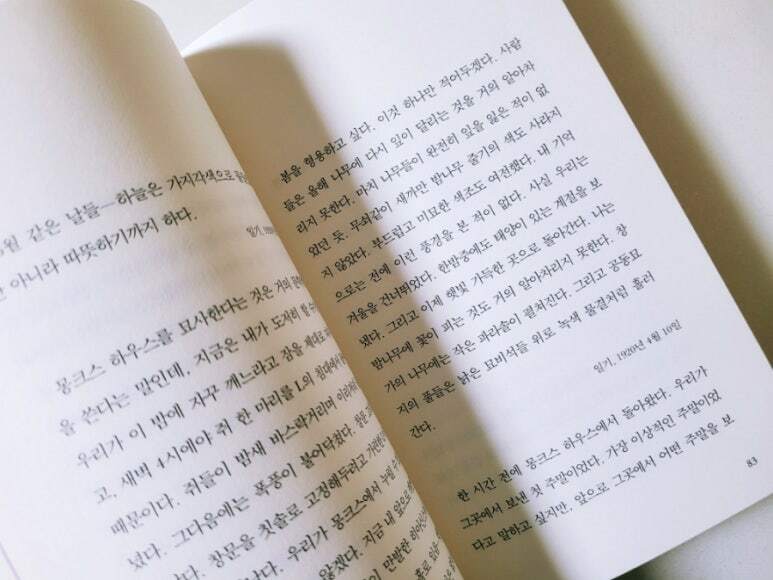 같은 날들—하늘은 가지각색으로
아니라 따뜻하기까지 하다.
일기,
몽크스 하우스를 묘사한다는 것은 거의
을 쓴다는 말인데, 지금은 내가 도저히 할 수
우리가 이 밤에 자꾸 깨느라고 잠을 제대로
고, 새벽 4시에야 쥐 한 마리를 L의 침대에서
때문이다. 쥐들이 밤새 바스락거리며
졌다. 그다음에는 폭풍이 불어닥쳤다. 창문
창문을 칫솔로 고정해두려고
우리가 몽크스에서 누릴 수
않겠다. 지금 내 앞으로
이 만발한
봄을 형용하고 싶다. 이것 하나만 적어두겠다. 사람
들은 올해 나무에 다시 잎이 달리는 것을 거의 알아차
리지 못한다. 마치 나무들이 완전히 잎을 잃은 적이 없
었던 듯. 무쇠같이 새까만 밤나무 줄기의 색도 사라지
지 않았다. 부드럽고 미묘한 색조도 여전했다. 내 기억
으로는 전에 이런 풍경을 본 적이 없다. 사실 우리는
겨울을 건너뛰었다. 한밤중에도 태양이 있는 계절을 보
냈다. 그리고 이제 햇빛 가득한 곳으로 돌아간다. 나는
밤나무에 꽃이 피는 것도 거의 알아차리지 못한다. 창
가의 나무에는 작은 파라솔이 펼쳐진다. 그리고 공동묘
지의 풀들은 낡은 묘비석들 위로 녹색 물결처럼 흘러
간다.
일기, 1920년 4월 10일
한 시간 전에 몽크스 하우스에서 돌아왔다. 우리가
그곳에서 보낸 첫 주말이었다. 가장 이상적인 주말이었
다고 말하고 싶지만, 앞으로 그곳에서 어떤 주말을 보
83